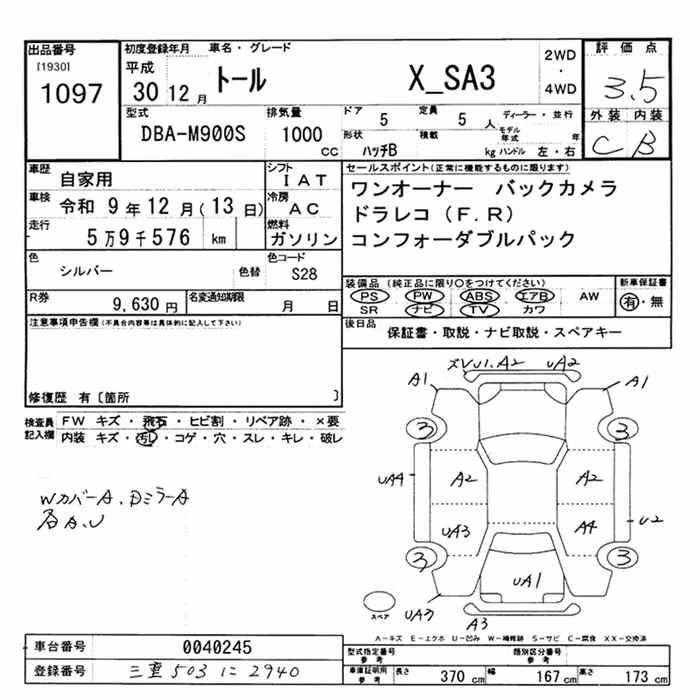 出品番号
[1930]
1097
初度登録年月 車名・グレード
平成 30 12 月
トール X_SA3
2WD
・
4WD
評価点
3.5
外装 内装
C B
型式
DBA-M900S
排気量
1000 cc
ドア 5 定員 5 人
ディーラー・並行
形状 ハッチB 積載 kg
モデル年式 年
ハンドル 左・右
車歴 自家用
シフト IAT
車検 令和 9 年 12 月(13 日)
冷房 AC
走行 5万9千576 km
燃料 ガソリン
色 シルバー 色替
色コード S28
R券 9,630 円
名変通知期限 月 日
セールスポイント(正常に機能するものに限ります)
ワンオーナー バックカメラ
ドラレコ(F.R)
コンフォーダブルパック
装備品(純正品に限り○をつけてください)
PS ・ PW ・ ABS ・ エアB ・ AW
SR ナビ TV カワ
新車保証書
有・無
後日品
保証書・取説・ナビ取説・スペアキー
注意事項申告欄(不具合内容等は具体的に記入して下さい)
修復歴 有〔箇所 〕
検査員記入欄
FW キズ・飛石・ヒビ割・リペア跡・×要
内装 キズ・汚れ・コゲ・穴・スレ・キレ・破レ
WカバーA、DミラーA
各A、U
A2 UA2
A1 A1
3 3
UA4 A2 A2
UA3 A4 U2
3 3
UA1
UA3 A3
スペア
A-キズ E-エクボ U-凹み W-補修跡 S-サビ C-腐食 XX-交換済
車台番号 0040245
登録番号 三重 503 に 2940
型式指定番号 参考
類別区分番号 参考
車庫証明用 参考
長さ 370 cm 幅 167 cm 高さ 173 cm